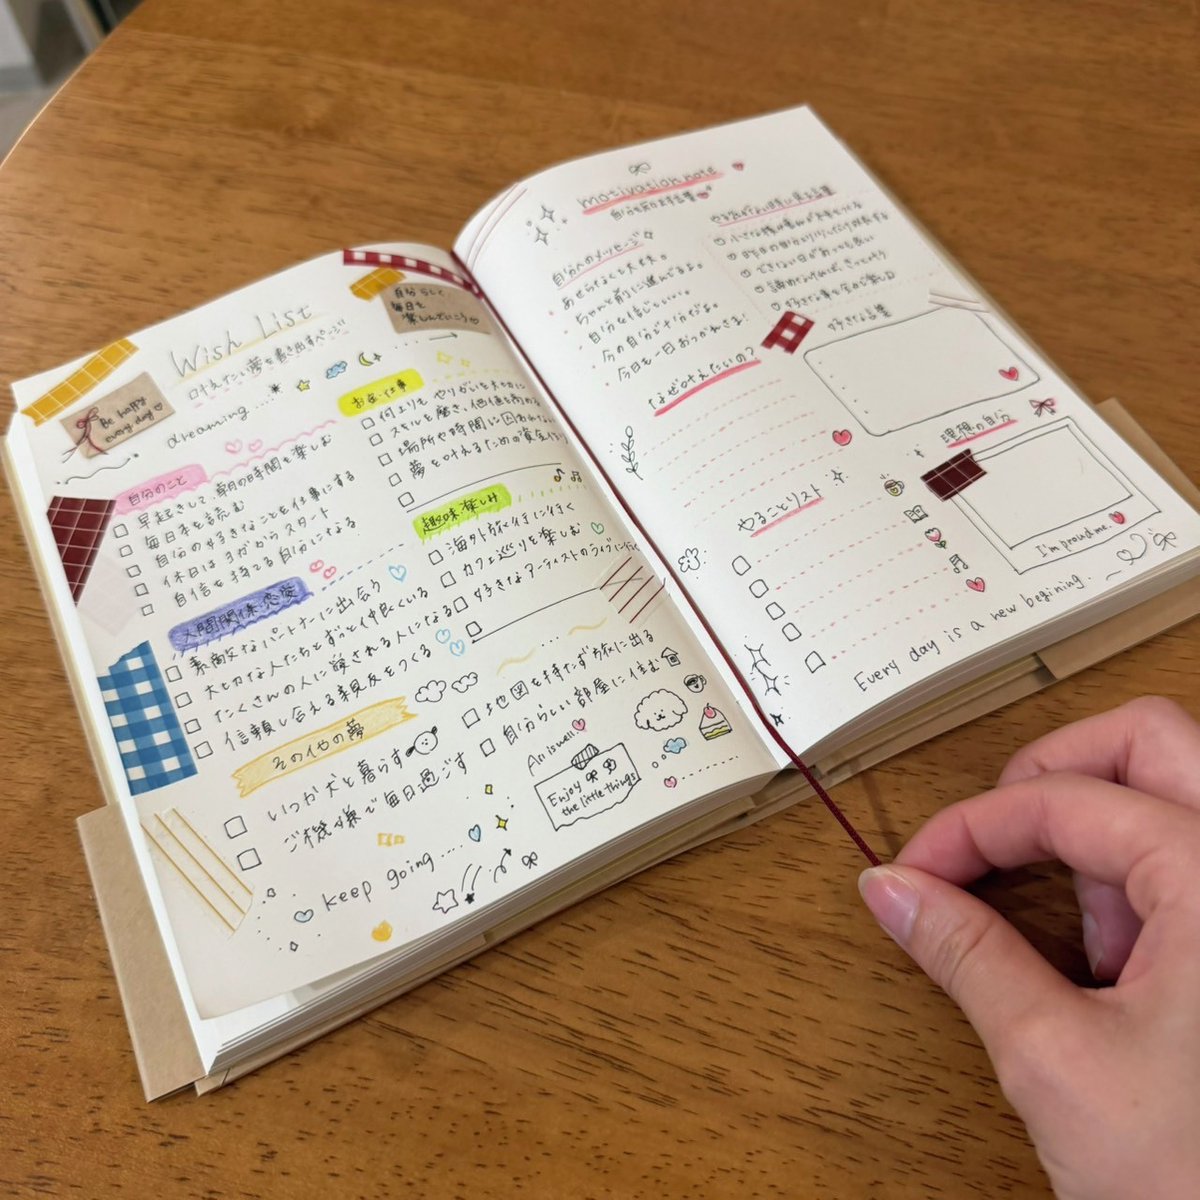 Wish List
叶えたい夢を書き出すページ
Be happy
every day♡
自分らしく、
毎日を
楽しんでいこう♡
dreaming....
自分のこと
□ 早起きして、朝の時間を楽しむ
□ 毎日本を読む
□ 自分の好きなことを仕事にする
□ 休日はヨガからスタート
□ 自信を持てる自分になる
人間関係・恋愛
□ 素敵なパートナーに出会う
□ 大切な人たちとずっと仲良くいる
□ たくさんの人に愛される人になる
□ 信頼し合える親友をつくる
その他の夢
□ いつか犬と暮らす
□ ご機嫌で毎日過ごす
keep going....
お金・仕事
□ 何よりもやりがいを大切に
□ スキルを磨き、価値を高める
□ 場所や時間に囚われない
□ 夢を叶えるための資金作り
□
趣味・楽しみ
□ 海外旅行に行く
□ カフェ巡りを楽しむ
□ 好きなアーティストのライブに行く
□
□ 地図を持たず旅に出る
□ 自分らしい部屋に住む
All is well
Enjoy
the little things
motivation note
自分へのメッセージ
あせらなくて大丈夫。
ちゃんと前に進んでるよ。
自分を信じていい。
今の自分で十分だよ。
今日も一日おつかれさま！
なぜ叶えたいの？
やることリスト
♡ できない日があっても良い
♡ 諦めなければ、きっと叶う
好きな言葉
理想の自分
I'm proud me.
Every day is a new begining.